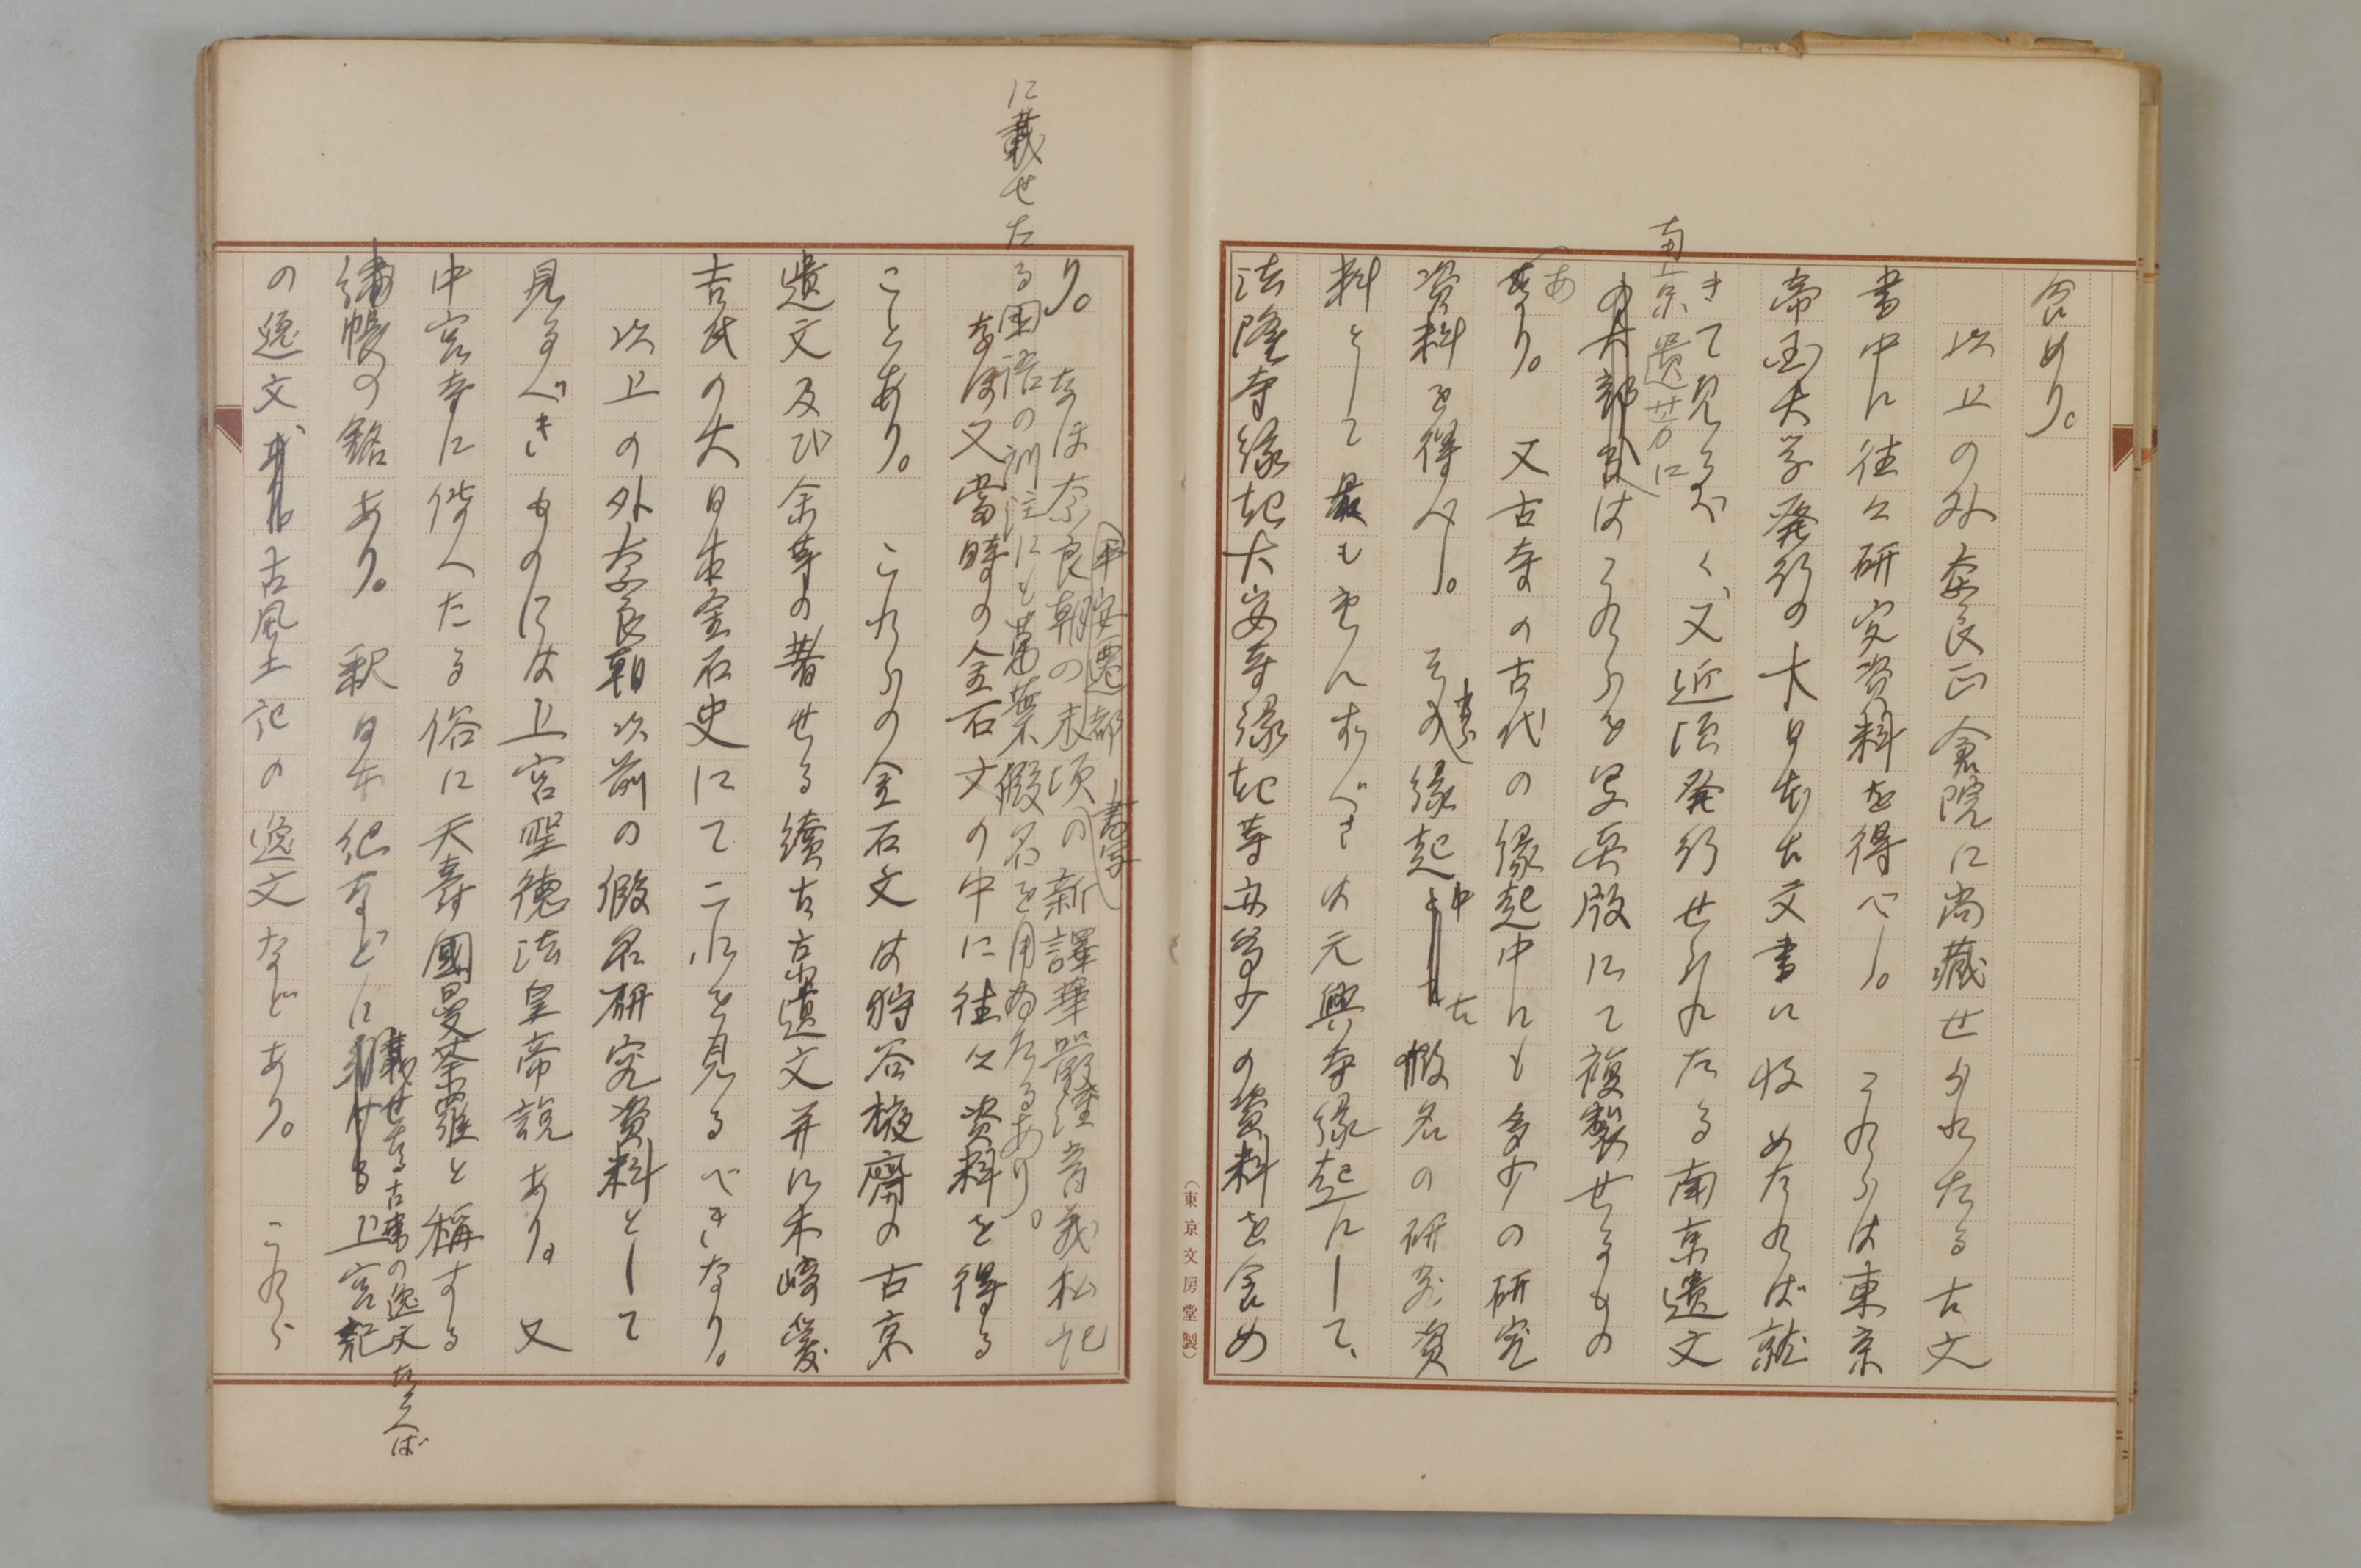 含めり。
以上の外奈良正倉院に尚蔵せられたる古文
書中に往々研究資料を得べし。これらは東京
帝国大学発行の大日本古文書に收めたれば就
きて見るべく、又近頃発行せられたる南京遺文
南京遺芳に
はこれらを写真版にて複製せるもの
あり。又古寺の古代の縁起中にも多少の研究
資料を得べし。その縁起中 古假名の研究資
料として最も重んずべきは元興寺縁起にして、
法隆寺縁起大安寺縁起等亦多少の資料を含め
り。なほ奈良朝の末頃の新譯華嚴經音義私記
平安遷都
書写
に載せたる国語の訓注にも萬葉假名を用ゐたるあり。
なほ又當時の金石文の中に往々資料を得る
ことあり。これらの金石文は狩谷棭齋の古京
遺文及び余等の著せる續古京遺文并に木崎愛
吉氏の大日本金石史にてこれを見るべきなり。
以上の外奈良朝以前の假名研究資料として
見るべきものには上宮聖徳法皇帝説あり。又
中宮寺に傳へたる俗に天壽國曼荼羅と稱する
繍帳の銘あり。釈日本紀などに
載せたる古書の逸文たとへば
上宮記
の逸文 古風土記の逸文などあり。これら
(東京文房堂製)